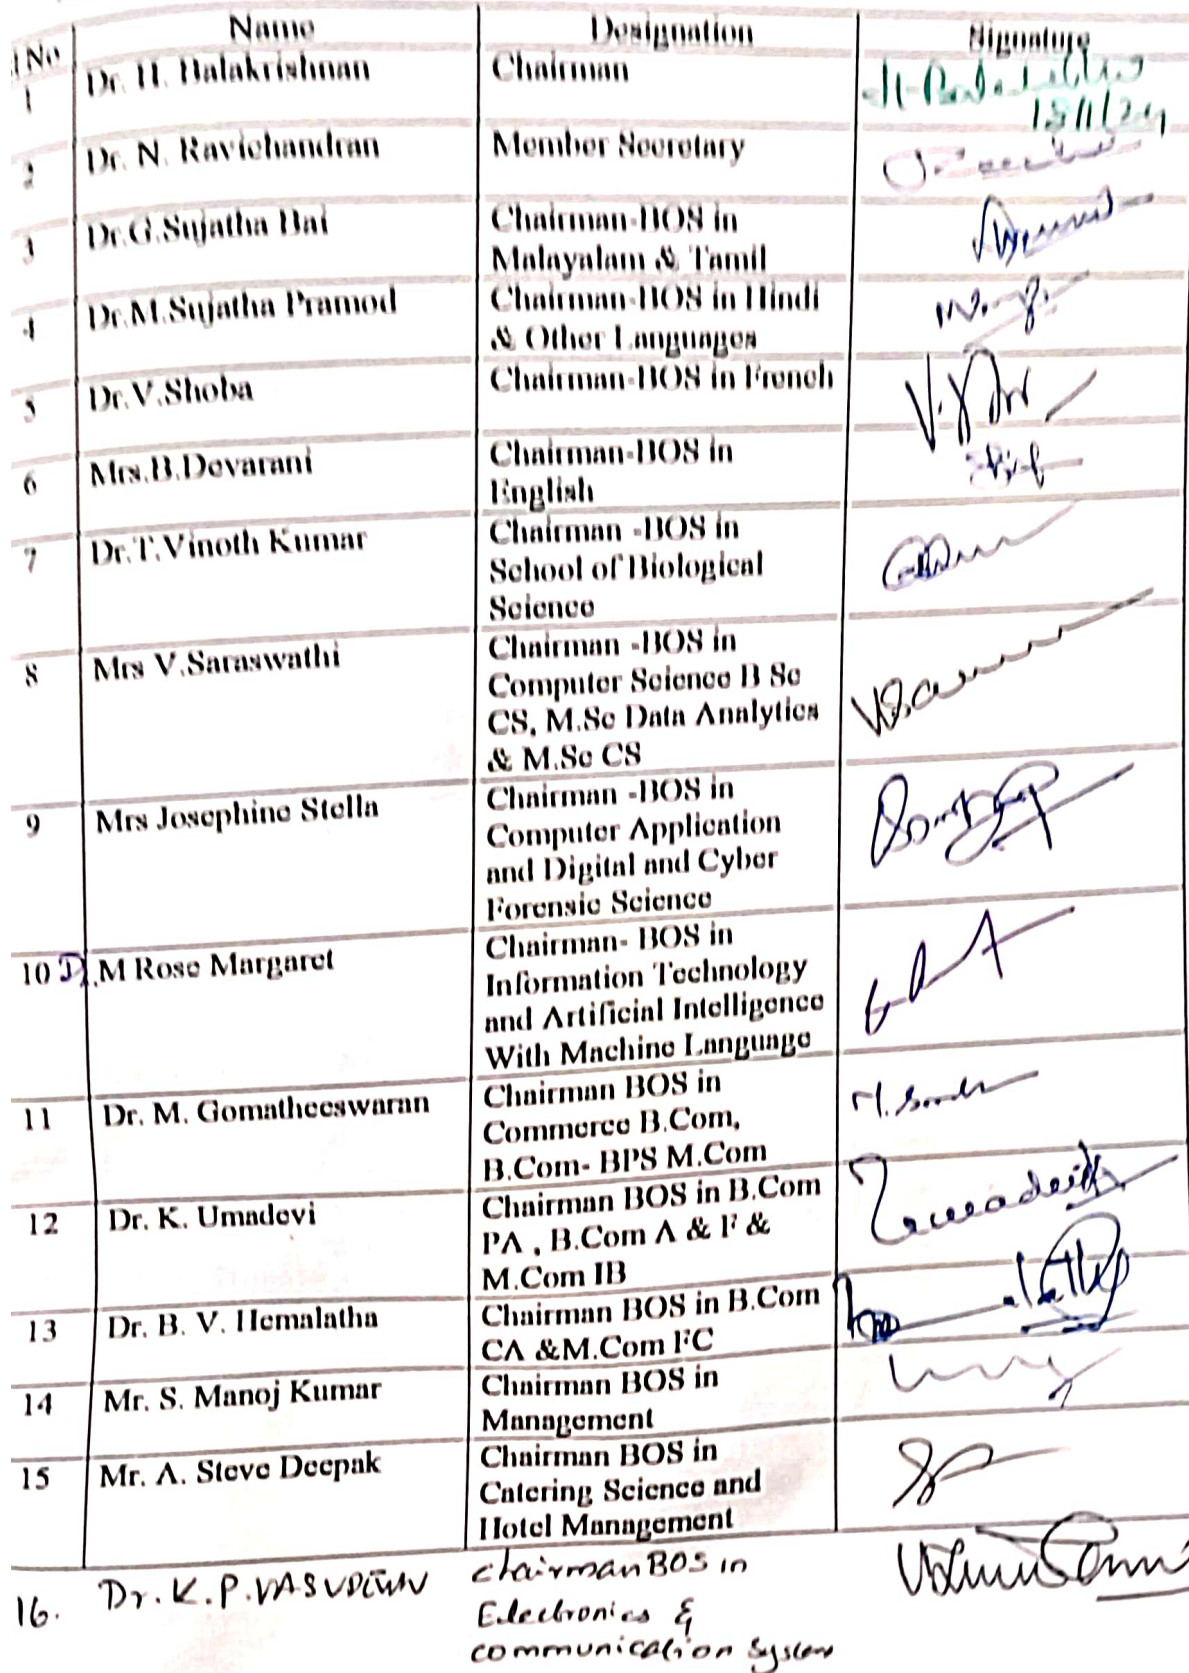 Sl No Name Designation Signature
1 Dr. H. Balakrishnan Chairman
18/1/24
2 Dr. N. Ravichandran Member Secretary
3 Dr.G.Sujatha Bai Chairman-BOS in
Malayalam & Tamil
4 Dr.M.Sujatha Pramod Chairman-BOS in Hindi
& Other Languages
5 Dr.V.Shoba Chairman-BOS in French
6 Mrs.B.Devarani Chairman-BOS in
English
7 Dr.T.Vinoth Kumar Chairman -BOS in
School of Biological
Science
8 Mrs V.Saraswathi Chairman -BOS in
Computer Science B Sc
CS, M.Sc Data Analytics
& M.Sc CS
9 Mrs Josephine Stella Chairman -BOS in
Computer Application
and Digital and Cyber
Forensic Science
10 D. M Rose Margaret Chairman- BOS in
Information Technology
and Artificial Intelligence
With Machine Language
11 Dr. M. Gomatheeswaran Chairman BOS in
Commerce B.Com,
B.Com- BPS M.Com
12 Dr. K. Umadevi Chairman BOS in B.Com
PA , B.Com A & F &
M.Com IB
13 Dr. B. V. Hemalatha Chairman BOS in B.Com
CA &M.Com FC
14 Mr. S. Manoj Kumar Chairman BOS in
Management
15 Mr. A. Steve Deepak Chairman BOS in
Catering Science and
Hotel Management
16. Dr. K. P. VASUDEVAN chairman BOS in
Electronics &
communication System